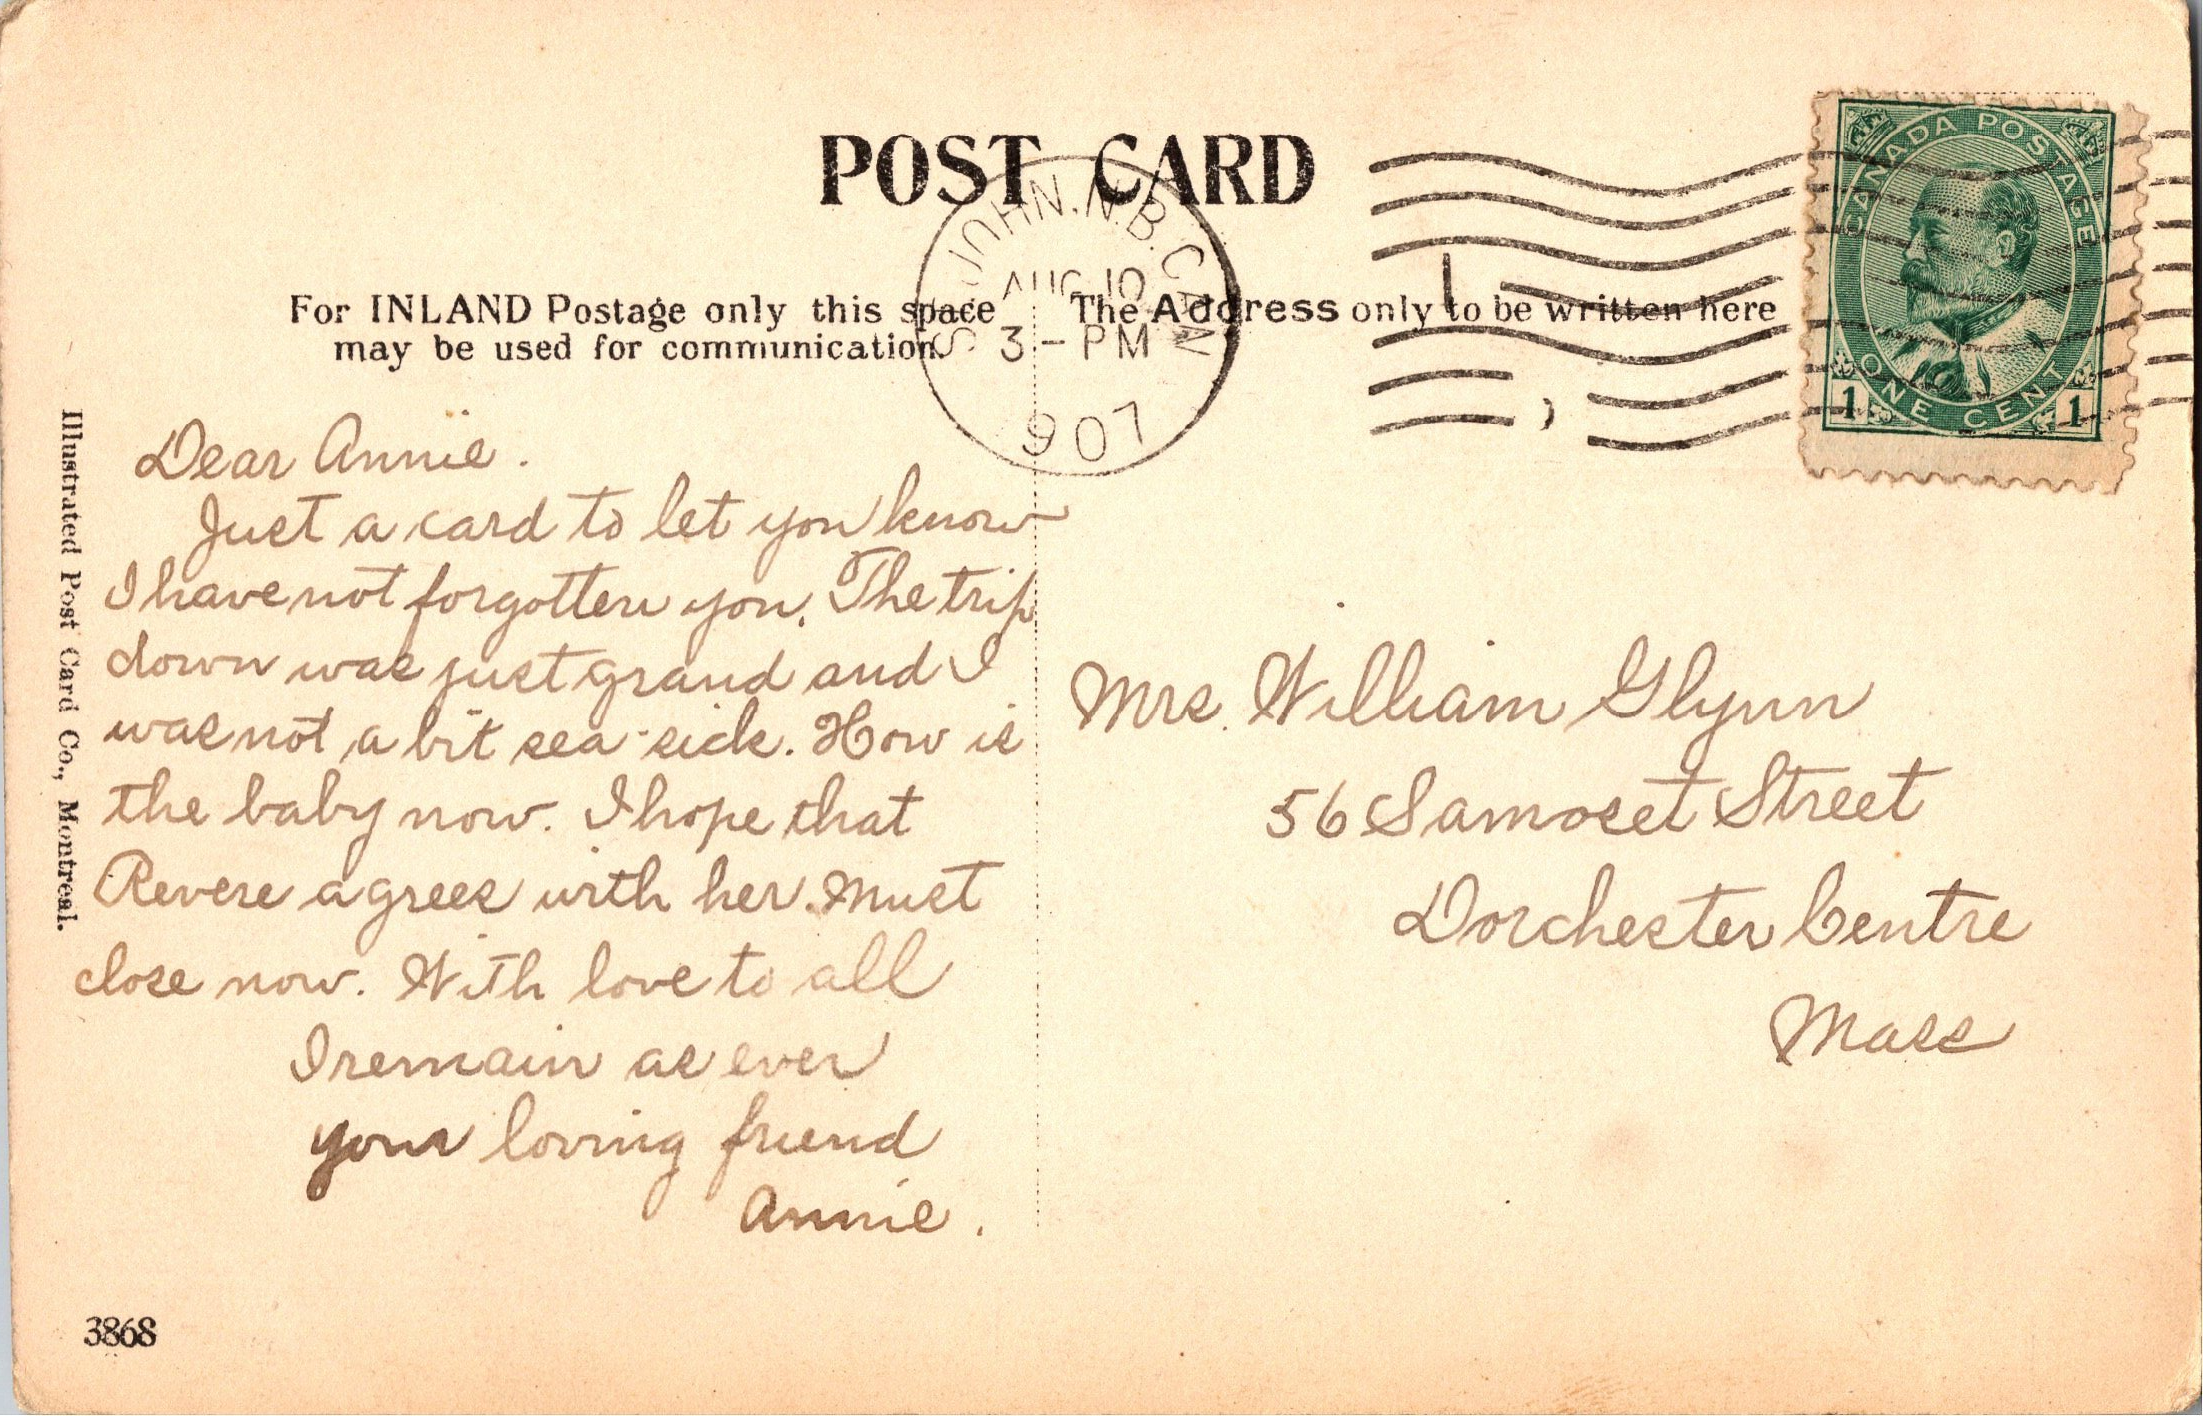 POST CARD
CANADA POSTAGE
ONE CENT
1 1
ST. JOHN. N.B. CAN
AUG 10
3 - PM
1907
For INLAND Postage only this space
may be used for communication.
The Address only to be written here
Illustrated Post Card Co., Montreal.
Dear Annie.
Just a card to let you know
I have not forgotten you. The trip
down was just grand and I
was not a bit sea-sick. How is
the baby now. I hope that
Revere agrees with her. Must
close now. With love to all
I remain as ever
your loving friend
Annie.
Mrs. William Glynn
56 Samoset Street
Dorchester Centre
Mass
3868